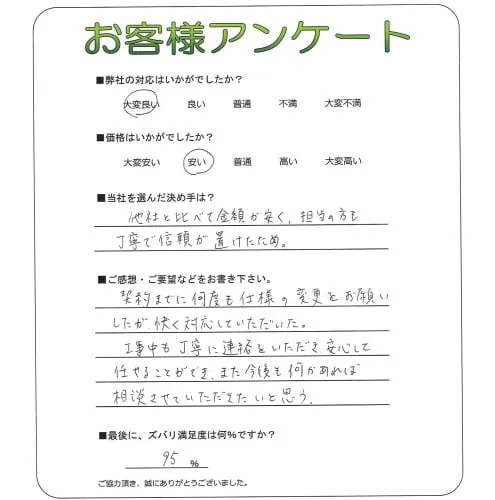 お客様アンケート
■弊社の対応はいかがでしたか？
大変良い 良い 普通 不満 大変不満
■価格はいかがでしたか？
大変安い 安い 普通 高い 大変高い
■当社を選んだ決め手は？
他社と比べて金額が安く、担当の方も
丁寧で信頼が置けたため。
■ご感想・ご要望などをお書き下さい。
契約までに何度も仕様の変更をお願い
したが、快く対応していただいた。
工事中も丁寧に連絡をいただき安心して
任せることができ、また今後も何かあれば
相談させていただきたいと思う。
■最後に、ズバリ満足度は何％ですか？
95 %
ご協力頂き、誠にありがとうございました。